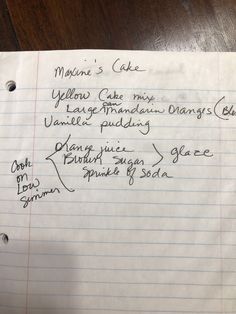 Maxine's Cake
Yellow Cake mix
Large can mandarin Oranges
Vanilla pudding
Orange juice
Brown Sugar
Sprinkle of Soda
glaze
Cook
on
Low
simmer